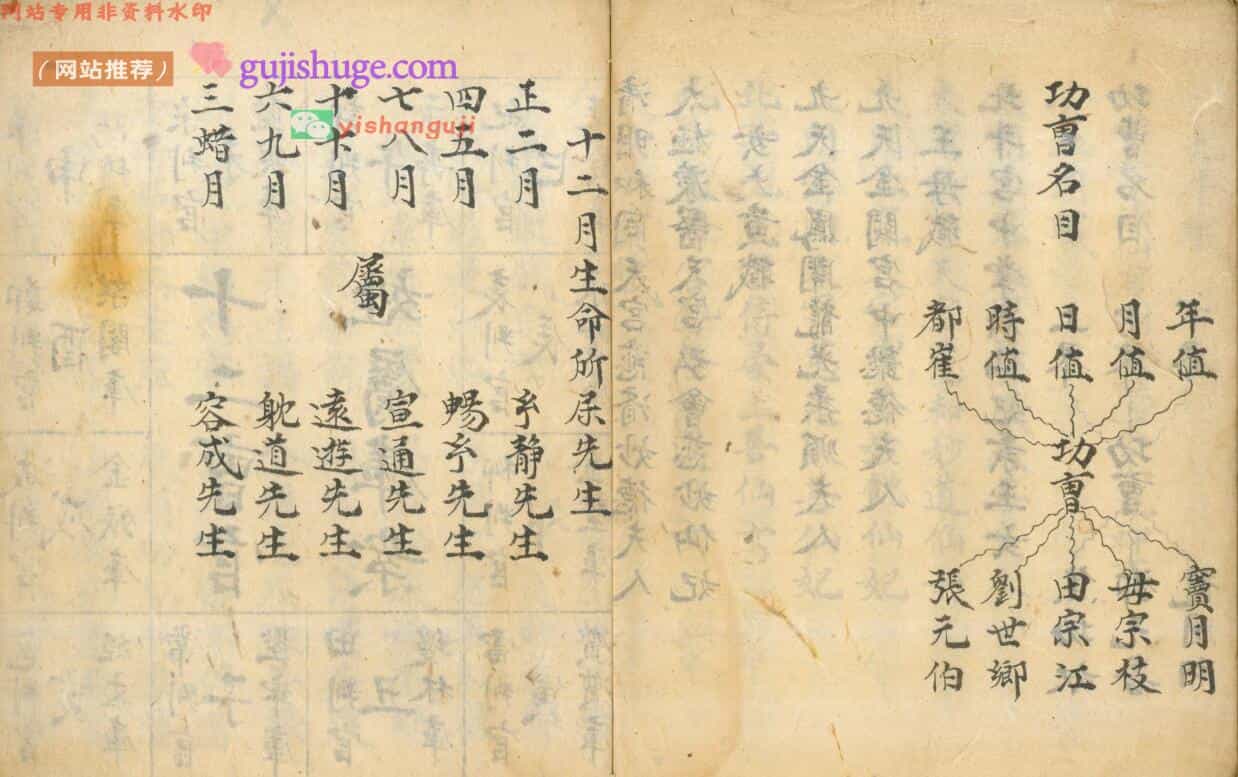 网站专用非资料水印
（网站推荐）
gujishuge.com
yishanguji
功曺名目
年值
月值
日值
時值
都雀
功曺
竇月明
毋宗枝
田宗江
劉世鄉
張元伯
十二月生命所屬先生
正二月
四五月
七八月
十十月
六九月
三蜡月
屬
玄靜先生
暢玄先生
宣通先生
遠遊先生
躭道先生
容成先生